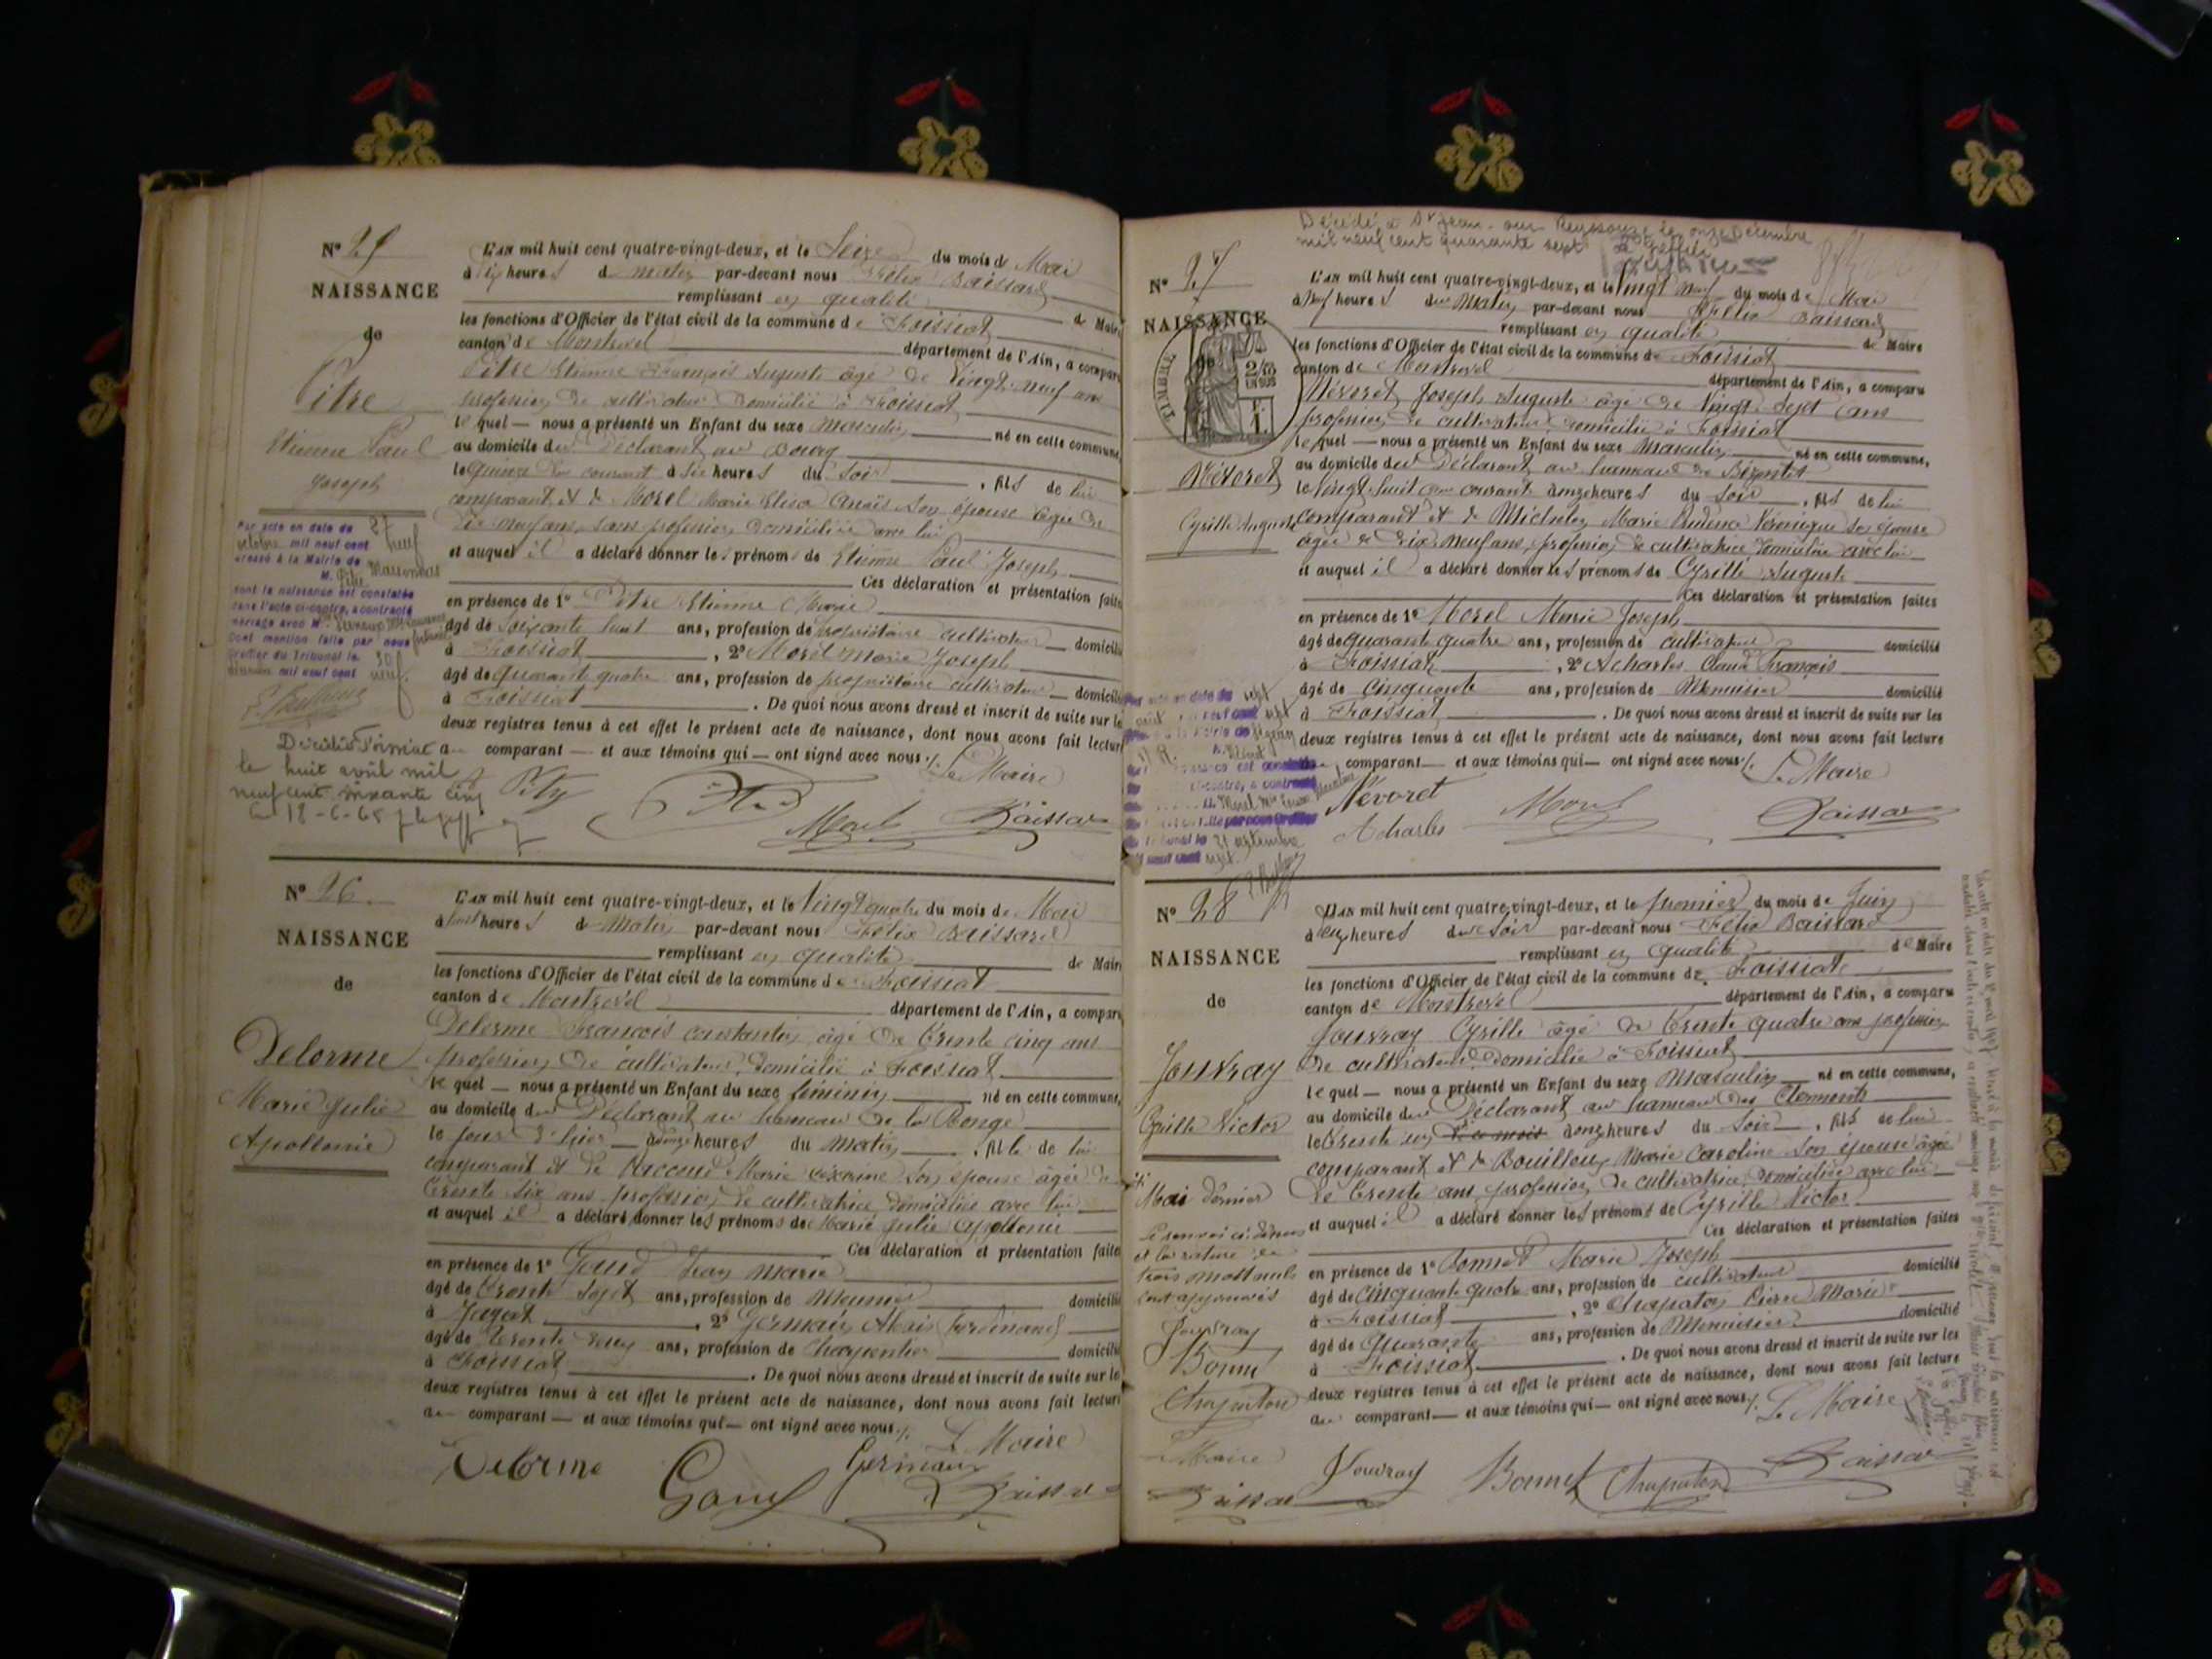 N° 25
NAISSANCE
de
Pitre
Etienne Paul
Joseph
L'AN mil huit cent quatre-vingt-deux, et le Seize du mois de Mai
à dix heures du matin par-devant nous Félix Baissard
remplissant en qualité de Maire
les fonctions d'Officier de l'état civil de la commune de Foissiat
canton de Montrevel département de l'Ain, a comparu
Pitre Etienne François Auguste âgé de Vingt-neuf ans
profession de cultivateur domicilié à Foissiat
lequel nous a présenté un Enfant du sexe Masculin né en cette commune,
au domicile du Déclarant au Bourg
le quinze du courant à six heures du soir, fils de lui
comparant et de Morel Marie Elisa Anaïs son épouse âgée de
dix-neuf ans, sans profession domiciliée avec lui
et auquel il a déclaré donner les prénoms de Etienne Paul Joseph
Ces déclaration et présentation faites
en présence de 1° Pitre Etienne Marie
âgé de soixante huit ans, profession de propriétaire cultivateur domicilié
à Foissiat, 2° Morel Marie Joseph
âgé de quarante quatre ans, profession de propriétaire cultivateur domicilié
à Foissiat. De quoi nous avons dressé et inscrit de suite sur les
deux registres tenus à cet effet le présent acte de naissance, dont nous avons fait lecture
au comparant et aux témoins qui ont signé avec nous./. Le Maire
Morel Baissard
Par acte en date du 27
octobre mil neuf cent neuf
dressé à la Mairie de
M. Pitre
dont la naissance est constatée
dans l'acte ci-contre, a contracté
mariage avec M
Dont mention faite par nous
Greffier du Tribunal le 30
mil neuf cent neuf.
Décédé à Foissiat
le huit avril mil
neuf cent soixante cinq
Le 18-6-65
N° 26
NAISSANCE
de
Delorme
Marie Julie
Apollonie
L'AN mil huit cent quatre-vingt-deux, et le Vingt quatre du mois de Mai
à huit heures du Matin par-devant nous Félix Baissard
remplissant en qualité de Maire
les fonctions d'Officier de l'état civil de la commune de Foissiat
canton de Montrevel département de l'Ain, a comparu
Delorme François Constantin âgé de trente cinq ans
profession de cultivateur, domicilié à Foissiat
lequel nous a présenté un Enfant du sexe féminin né en cette commune,
au domicile du Déclarant au hameau de la Ronge
le jour d'hier à onze heures du matin, fille de lui
comparant et de Marie son épouse âgée de
trente six ans, profession de cultivatrice, domiciliée avec lui
et auquel il a déclaré donner les prénoms de Marie Julie Apollonie
Ces déclaration et présentation faites
en présence de 1° Marie
âgé de trente sept ans, profession de Meunier domicilié
à Jayat, 2° Germain Ferdinand
âgé de trente ans, profession de Charpentier domicilié
à Foissiat. De quoi nous avons dressé et inscrit de suite sur les
deux registres tenus à cet effet le présent acte de naissance, dont nous avons fait lecture
au comparant et aux témoins qui ont signé avec nous./. Le Maire
Delorme Germain Baissard
Décédé à St Jean-sur-Reyssouze le onze décembre
mil neuf cent quarante sept
N° 27
NAISSANCE
de
TIMBRE
Névoret
Cyrille Auguste
L'AN mil huit cent quatre-vingt-deux, et le Vingt neuf du mois de Mai
à neuf heures du Matin par-devant nous Félix Baissard
remplissant en qualité de Maire
les fonctions d'Officier de l'état civil de la commune de Foissiat
canton de Montrevel département de l'Ain, a comparu
Névoret Joseph Auguste âgé de Vingt-sept ans
profession de cultivateur, domicilié à Foissiat
lequel nous a présenté un Enfant du sexe Masculin né en cette commune,
au domicile du Déclarant au hameau de
le Vingt-huit du courant à onze heures du soir, fils de lui
comparant et de Michelon Marie Prudence Véronique son épouse
âgée de dix-neuf ans, profession de cultivatrice domiciliée avec lui
et auquel il a déclaré donner les prénoms de Cyrille Auguste
Ces déclaration et présentation faites
en présence de 1° Morel Marie Joseph
âgé de quarante quatre ans, profession de cultivateur domicilié
à Foissiat, 2° Acharles Claude François
âgé de cinquante ans, profession de Menuisier domicilié
à Foissiat. De quoi nous avons dressé et inscrit de suite sur les
deux registres tenus à cet effet le présent acte de naissance, dont nous avons fait lecture
comparant et aux témoins qui ont signé avec nous./. Le Maire
Névoret Morel
Acharles Baissard
Par acte en date du sept
21 septembre
mil neuf cent sept.
N° 28
NAISSANCE
de
Jouvray
Cyrille Victor
L'AN mil huit cent quatre-vingt-deux, et le premier du mois de Juin
à heures du soir par-devant nous Félix Baissard
remplissant en qualité de Maire
les fonctions d'Officier de l'état civil de la commune de Foissiat
canton de Montrevel département de l'Ain, a comparu
Jouvray Cyrille âgé de trente quatre ans profession
de cultivateur, domicilié à Foissiat
lequel nous a présenté un Enfant du sexe Masculin né en cette commune,
au domicile du Déclarant au hameau des Clements
le trente un de ce mois à onze heures du soir, fils de lui
comparant et de Bouilloux Marie Caroline son épouse âgée
de trente ans, profession de cultivatrice, domiciliée avec lui
et auquel il a déclaré donner les prénoms de Cyrille Victor
Ces déclaration et présentation faites
en présence de 1° Bonnet Marie Joseph
âgé de cinquante quatre ans, profession de cultivateur domicilié
à Foissiat, 2° Chapaton Pierre Marie
âgé de quarante ans, profession de Menuisier domicilié
à Foissiat. De quoi nous avons dressé et inscrit de suite sur les
deux registres tenus à cet effet le présent acte de naissance, dont nous avons fait lecture
au comparant et aux témoins qui ont signé avec nous./. Le Maire
Jouvray Bonnet Chapaton Baissard
Mai dernier
Le renvoi ci-dessus
et la rature de
trois mots nuls
sont approuvés
Jouvray
Bonnet
Chapaton
Le Maire
Baissard